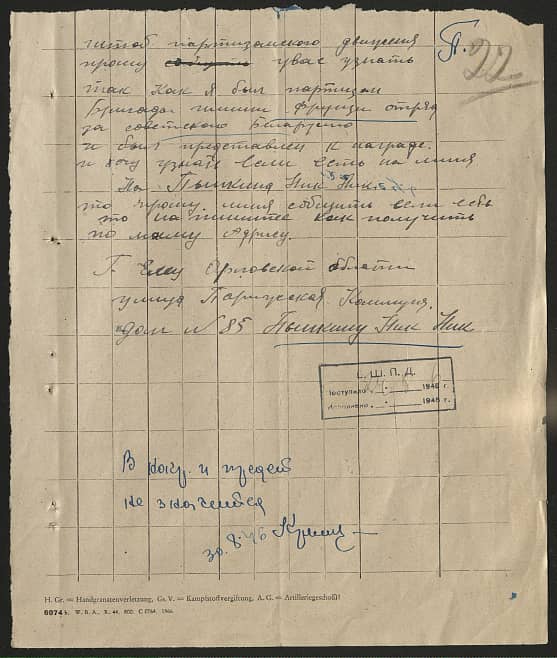 П. 22
штоб партизанского движения
прошу собщить увас узнать
так как я был партизан
бригады имини Фрунзи отряд
за советскою Беларусию
и был представлен к награде.
и хочу узнать если есть на миня
На Пышкина Ник Ник.
то прошу. миня собщить если есть
то напишите как получить
по моему Адресу.
Г Елец Орловской области
улица Парижская Коммуна.
дом N 85 Пышкину Ник Ник
Ц. Ш. П. Д.
Поступило 1946 г.
Исполнено 1946 г.
В нагр. и предст
не значится
30.8.46
H. Gr. = Handgranatenverletzung, Gs. V. = Kampfstoffvergiftung, A. G. = Artilleriegeschoß!
6074 b. W. B. A., X. 44. 800. C 0764. 1944.